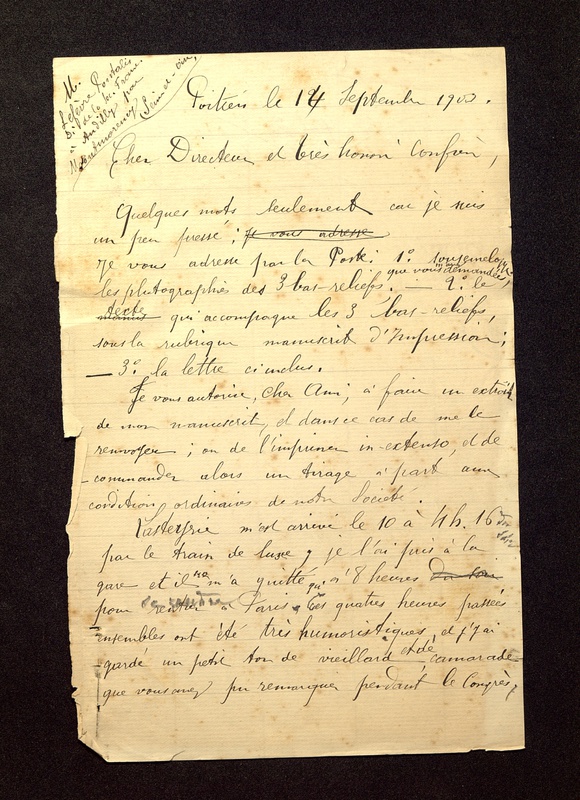 M.
Lefèvre Pontalis
D. de la sté Franc.
à Andilly par
Montmorency
(Seine-et-Oise
Poitiers le 14 Septembre 1903.
Cher Directeur et très honoré Confrère,
Quelques mots seulement car je suis
un peu pressé ; Je vous adresse
Je vous adresse par la Poste : 1° sous enveloppe
que vous demandez,
les photographies des 3 bas-reliefs. — 2° le
texte
qui accompagne les 3 bas-reliefs,
sous la rubrique manuscrit d'Impression ;
— 3° la lettre ci incluse.
Je vous autorise, cher Ami, à faire un extrait
de mon manuscrit, et dans ce cas de me le
renvoyer ; ou de l'imprimer in-extenso, et de
commander alors un tirage à part aux
conditions ordinaires de notre Société.
Lasteyrie m'est arrivé le 10 à 4h. 16 du soir
par le train de luxe, je l'ai pris à la
gare et il ne m'a quitté qu'à 8 heures du soir
pour rentrer à Paris, Ces quatres heures passées
ensembles ont été très humoristiques, et j'y ai
gardé un petit ton de vieillard et de camarade
que vous avez pu remarquer pendant le Congrès,